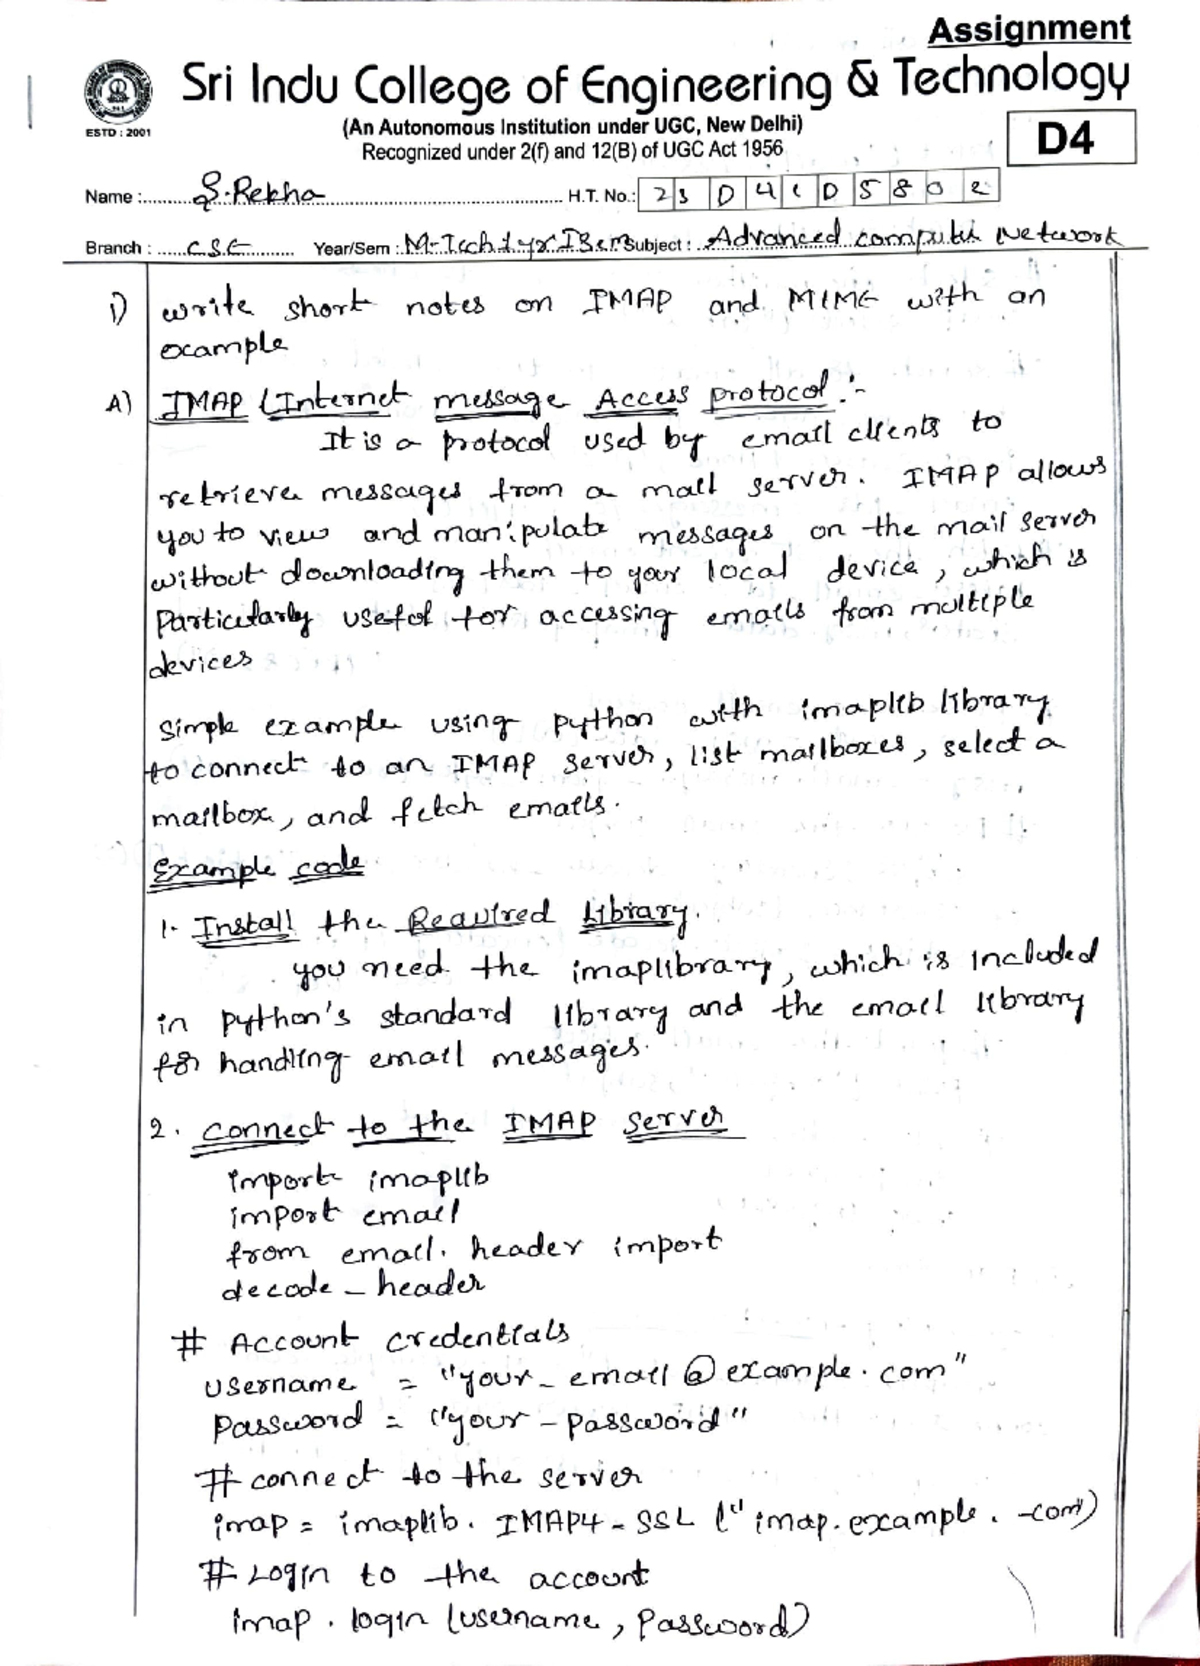 Assignment
Sri Indu College of Engineering & Technology
ESTD : 2001
(An Autonomous Institution under UGC, New Delhi)
Recognized under 2(f) and 12(B) of UGC Act 1956
D4
Name : S.Rekha H.T. No.: 23D41D5802
Branch : CSE Year/Sem : M-Tech 1yr I Sem Subject : Advanced computer Network
1) write short notes on IMAP and MIME with an
example
A) IMAP (Internet message Access protocol :-
It is a protocol used by email clients to
retrieve messages from a mail server. IMAP allows
you to view and manipulate messages on the mail server
without downloading them to your local device, which is
Particularly useful for accessing emails from multiple
devices
Simple example using python with imaplib library
to connect to an IMAP server, list mailboxes, select a
mailbox, and fetch emails.
Example code
1. Install the Required Library.
you need the imaplibrary, which is included
in python's standard library and the email library
for handling email messages.
2. Connect to the IMAP Server
import imaplib
import email
from email. header import
decode _ header
# Account credentials
username = "your_email@example.com"
Password = "your-password"
# connect to the server
imap = imaplib. IMAP4-SSL ("imap.example. com")
# Login to the account
imap. login (username, password)